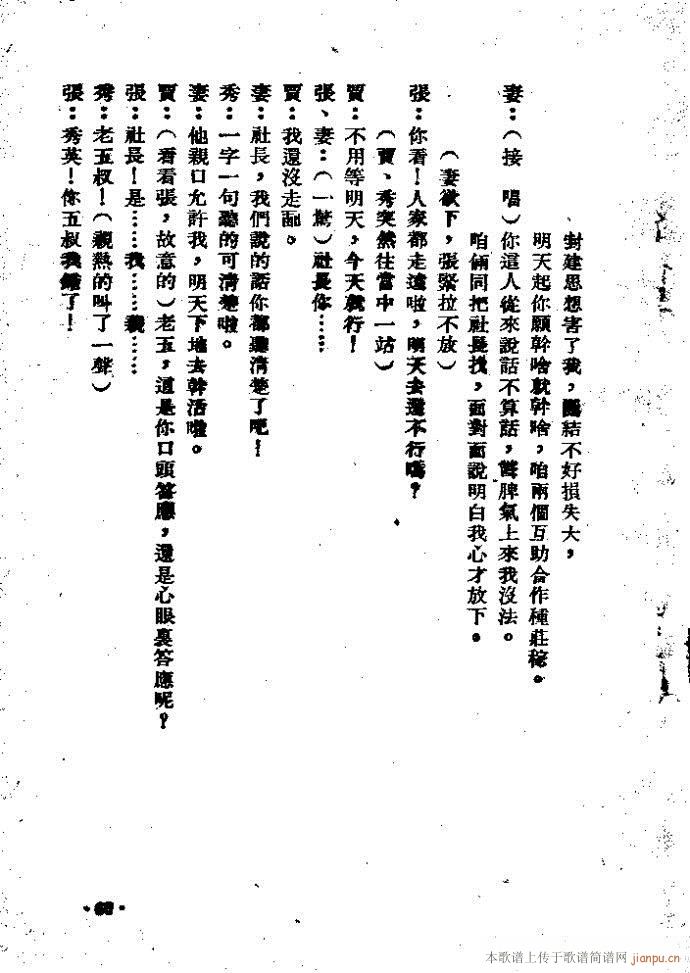 封建思想害了我，團結不好損失大，
明天起你願幹啥就幹啥，咱兩個互助合作種莊稼。
妻：（接唱）你這人從來說話不算話，脾氣上來我沒法。
咱倆同把社長找，面對面說明白我心才放下。
（妻欲下，張緊拉不放）
張：你看！人家都走遠啦，明天去還不行嗎？
（賈、秀突然往當中一站）
賈：不用等明天，今天就行！
張、妻：（一驚）社長你……
賈：我還沒走咧。
妻：社長，我們說的話你都聽清楚了吧！
秀：一字一句聽的可清楚啦。
妻：他親口允許我，明天下地去幹活啦。
賈：（看看張，故意的）老五，這是你口頭答應，還是心眼裏答應呢！
張：社長！是……我……我……
秀：老五叔！（親熱的叫了一聲）
張：秀英！你五叔我錯了！
本歌谱上传于歌谱简谱网 jianpu.cn